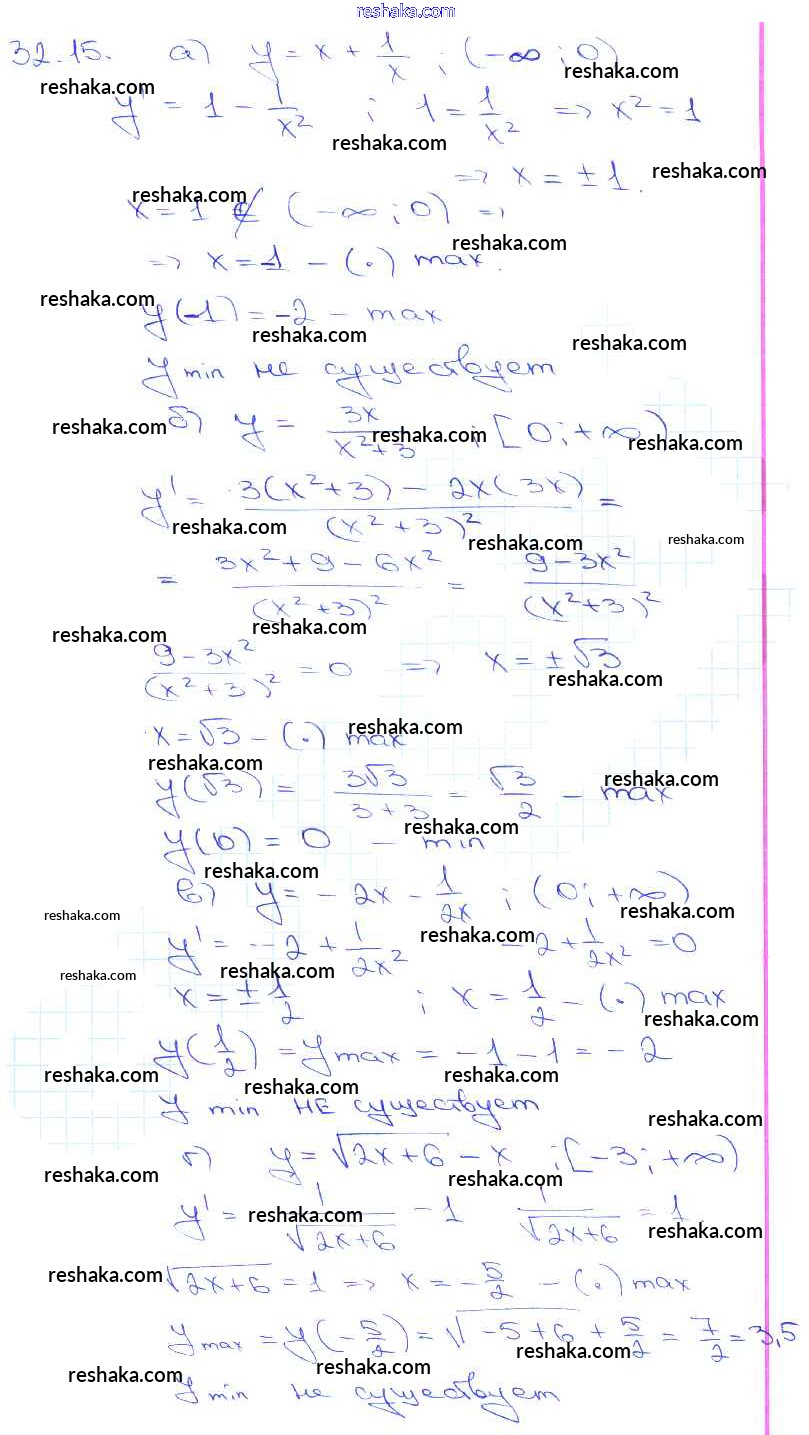 reshaka.com
32.15. а) y = x + 1/x ; (-∞ ; 0)
reshaka.com
reshaka.com
y' = 1 - 1/x² ; 1 = 1/x² => x² = 1
reshaka.com
=> x = ±1.
reshaka.com
reshaka.com
x = 1 ∉ (-∞ ; 0) =>
reshaka.com
=> x = -1 - (·) max.
reshaka.com
y(-1) = -2 - max
reshaka.com
reshaka.com
y min не существует
б) y = 3x/(x²+3) ; [0 ; +∞)
reshaka.com
reshaka.com
reshaka.com
y' = (3(x²+3) - 2x(3x))/(x²+3)² =
reshaka.com
reshaka.com
reshaka.com
= (3x²+9-6x²)/(x²+3)² = (9-3x²)/(x²+3)²
reshaka.com
reshaka.com
(9-3x²)/(x²+3)² = 0 => x = ±√3
reshaka.com
x = √3 - (·) max
reshaka.com
reshaka.com
y(√3) = 3√3/(3+3) = √3/2 - max
reshaka.com
reshaka.com
y(0) = 0 - min
reshaka.com
в) y = -2x - 1/2x ; (0 ; +∞)
reshaka.com
reshaka.com
y' = -2 + 1/2x² -2 + 1/2x² = 0
reshaka.com
reshaka.com
reshaka.com
x = ±1/2 ; x = 1/2 - (·) max
reshaka.com
y(1/2) = y max = -1 - 1 = -2
reshaka.com
reshaka.com
reshaka.com
y min НЕ существует
reshaka.com
г) y = √(2x+6) - x ; [-3 ; +∞)
reshaka.com
reshaka.com
y' = 1/√(2x+6) - 1 1/√(2x+6) = 1
reshaka.com
reshaka.com
√(2x+6) = 1 => x = -5/2 - (·) max
reshaka.com
y max = y(-5/2) = √(-5+6) + 5/2 = 7/2 = 3,5
reshaka.com
reshaka.com
reshaka.com
y min не существует